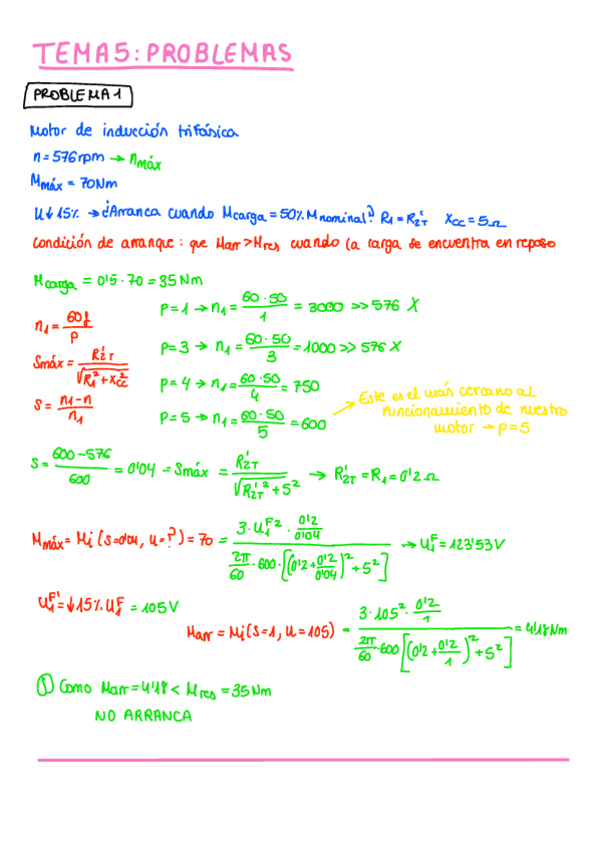 TEMA5: PROBLEMAS
PROBLEMA 1
Motor de inducción trifásica
n = 576 rpm → nmáx
Mmáx = 70Nm
U↓15% → ¿Arranca cuando Mcarga = 50% Mnominal? R1 = R2T' Xcc = 5Ω
Condición de arranque: que Marr > Mres cuando la carga se encuentra en reposo
Mcarga = 0'5 · 70 = 35 Nm
n1 = 60f/P
Smáx = R2T'/√(R1² + Xcc²)
S = (n1 - n)/n1
P=1 → n1 = 60·50/1 = 3000 >> 576 X
P=3 → n1 = 60·50/3 = 1000 >> 576 X
P=4 → n1 = 60·50/4 = 750
P=5 → n1 = 60·50/5 = 600
Este es el más cercano al
funcionamiento de nuestro
motor → P=5
S = (600-576)/600 = 0'04 = Smáx = R2T'/√(R2T'² + 5²) → R2T' = R1 = 0'2Ω
Mmáx = Mi (S=0'04, U=?) = 70 = (3·U1F² · 0'2/0'04)/(2π/60 · 600 · [(0'2 + 0'2/0'04)² + 5²]) → U1F = 123'53 V
U1F' = ↓15% U1F = 105 V
Marr = Mi (S=1, U=105) = (3·105² · 0'2/1)/(2π/60 · 600 [(0'2 + 0'2/1)² + 5²]) = 4'18 Nm
Como Marr = 4'18 < Mres = 35 Nm
NO ARRANCA